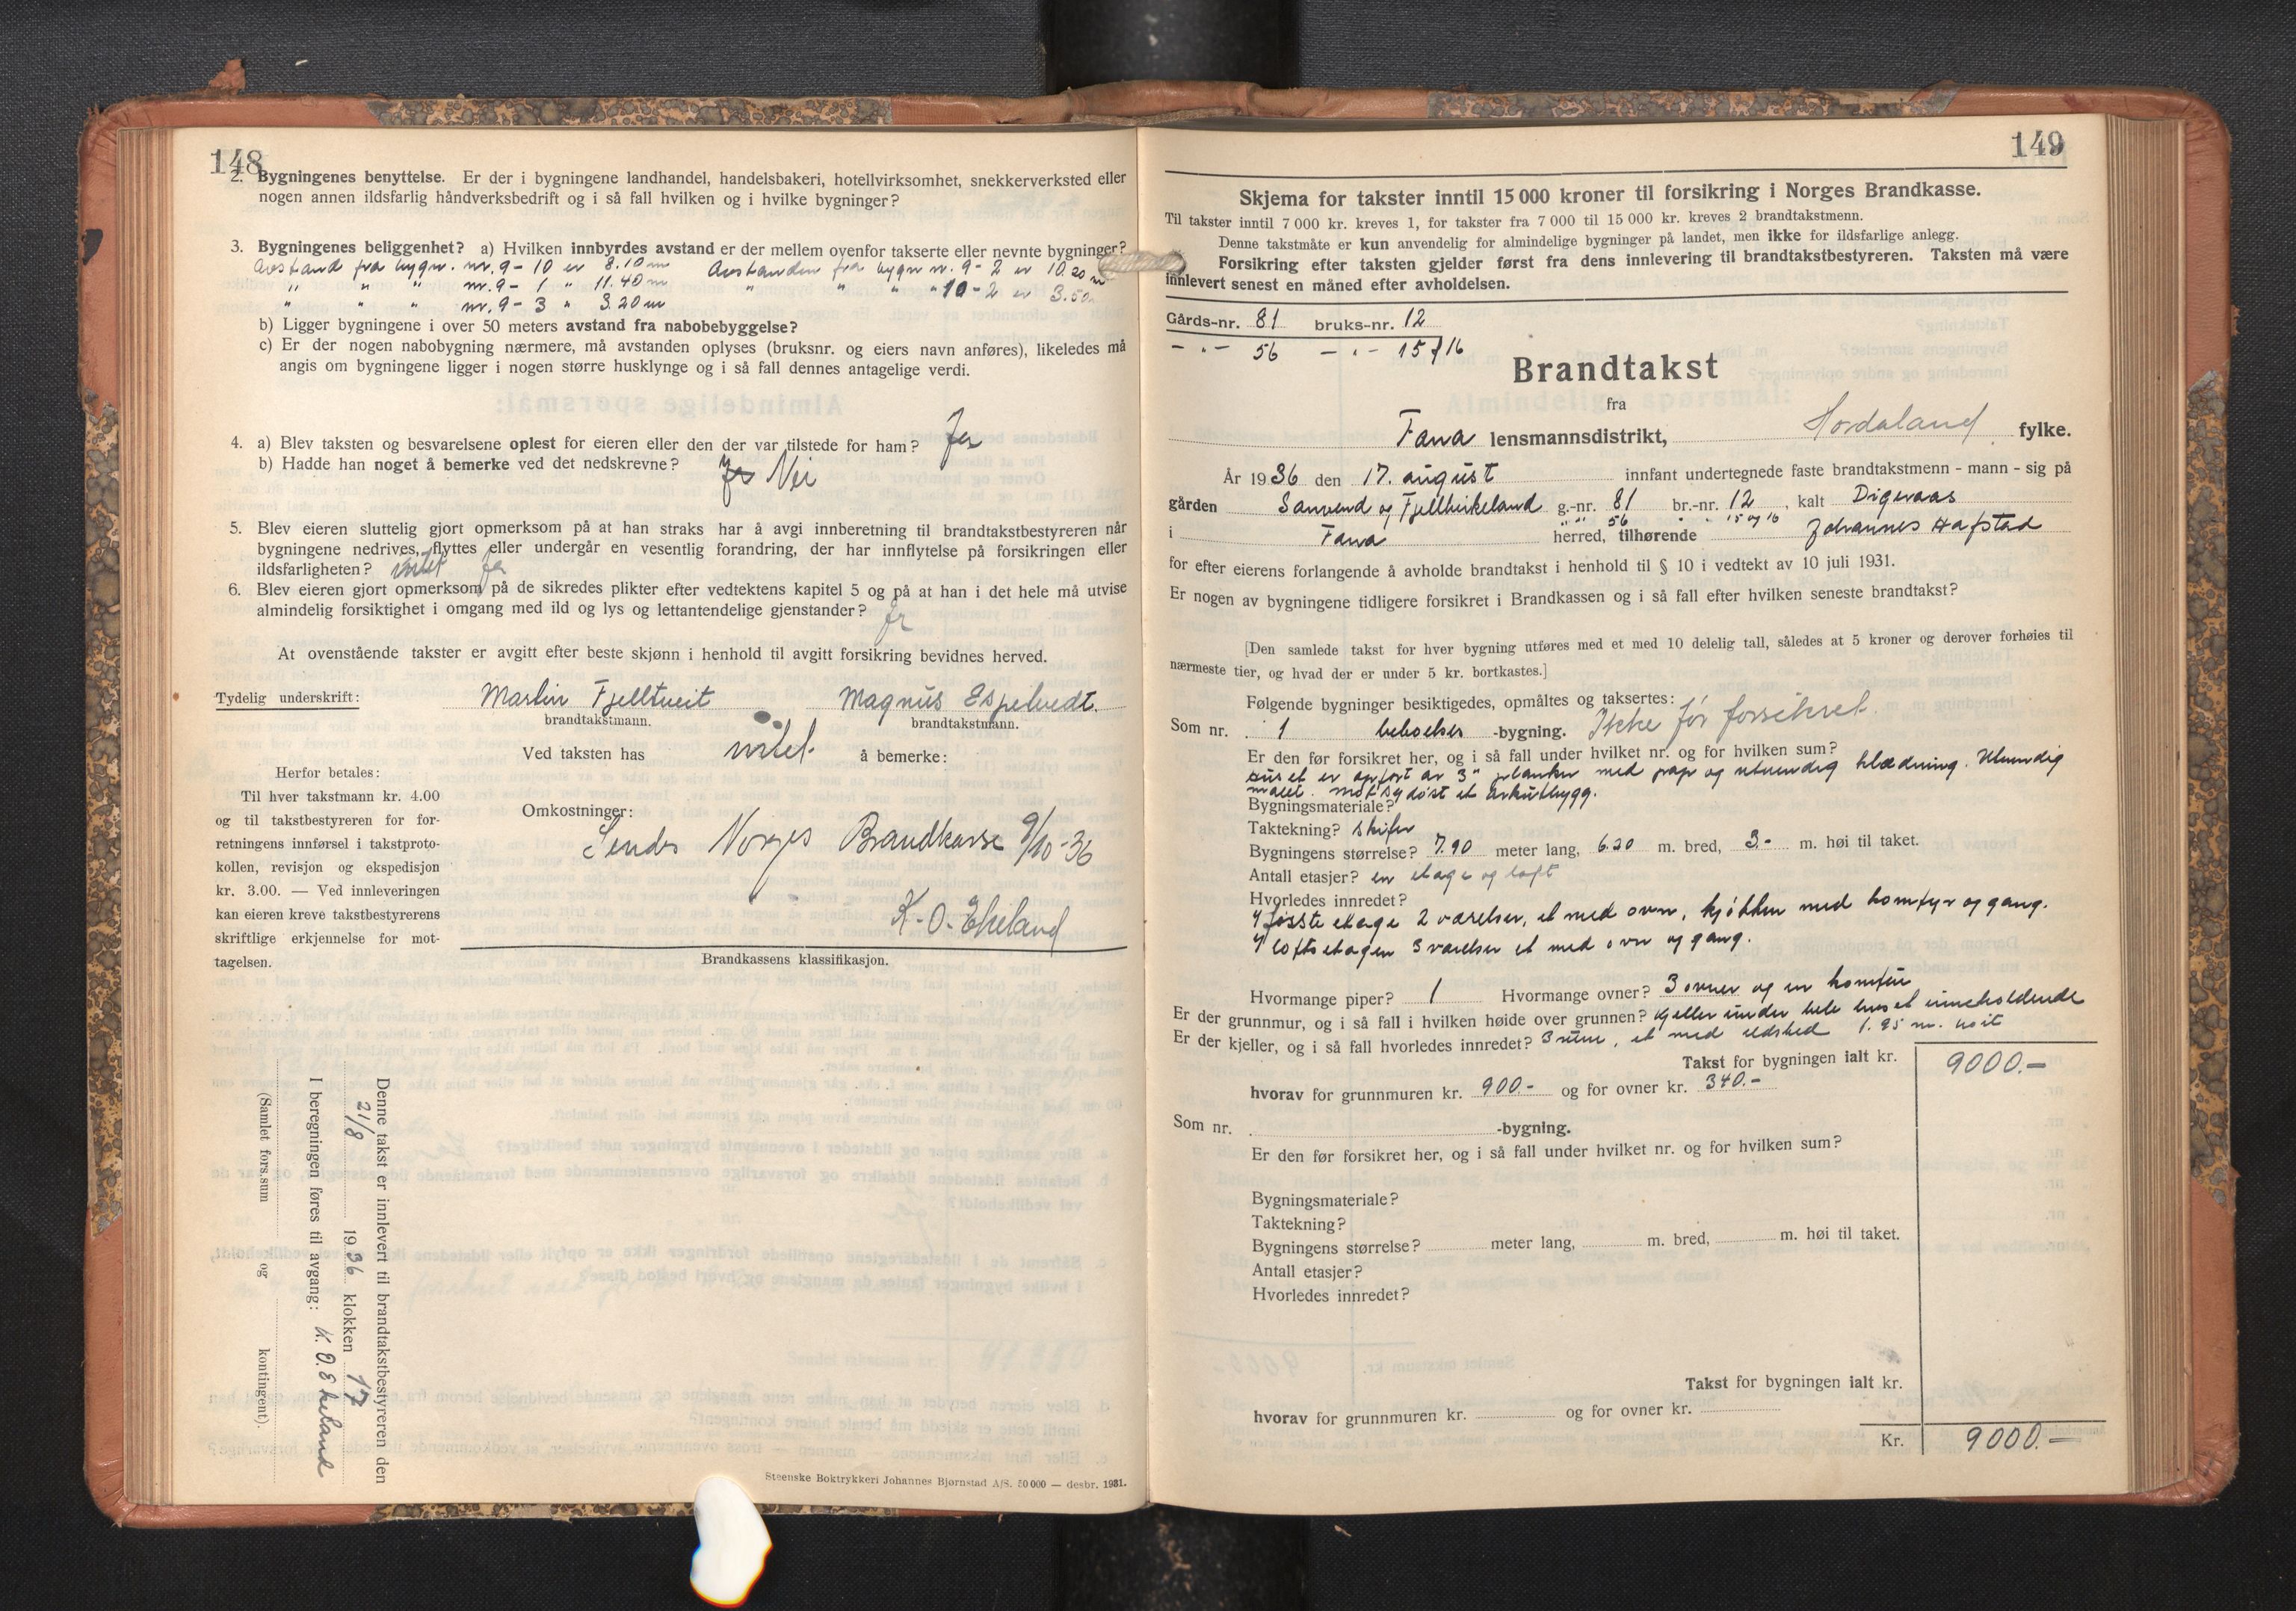 148
2. Bygningenes benyttelse. Er der i bygningene landhandel, handelsbakeri, hotellvirksomhet, snekkerverksted eller
nogen annen ildsfarlig håndverksbedrift og i så fall hvilken og i hvilke bygninger?
3. Bygningenes beliggenhet? a) Hvilken innbyrdes avstand er der mellem ovenfor takserte eller nevnte bygninger?
Avstand fra bygn. nr. 9 - 10 er 8.10 m Avstanden fra bygn nr. 9 - 2 er 10 20 m
" " " nr. 9 - 1 " 11.40 m " " " " 10 - 2 er 3.50
" " " nr. 9 - 3 " 3.20 m
b) Ligger bygningene i over 50 meters avstand fra nabobebyggelse?
c) Er der nogen nabobygning nærmere, må avstanden oplyses (bruksnr. og eiers navn anføres), likeledes må
angis om bygningene ligger i nogen større husklynge og i så fall dennes antagelige verdi.
4. a) Blev taksten og besvarelsene oplest for eieren eller den der var tilstede for ham? Ja
b) Hadde han noget å bemerke ved det nedskrevne? Ja Nei
5. Blev eieren sluttelig gjort opmerksom på at han straks har å avgi innberetning til brandtakstbestyreren når
bygningene nedrives, flyttes eller undergår en vesentlig forandring, der har innflytelse på forsikringen eller
ildsfarligheten? intet Ja
6. Blev eieren gjort opmerksom på de sikredes plikter efter vedtektens kapitel 5 og på at han i det hele må utvise
almindelig forsiktighet i omgang med ild og lys og lettantendelige gjenstander? Ja
At ovenstående takster er avgitt efter beste skjønn i henhold til avgitt forsikring bevidnes herved.
Tydelig underskrift: Martin Fjelltveit Magnus Espelvedt.
brandtakstmann. brandtakstmann.
Ved taksten has intet å bemerke:
Herfor betales:
Til hver takstmann kr. 4.00
og til takstbestyreren for for-
retningens innførsel i takstproto-
kollen, revisjon og ekspedisjon
kr. 3.00. — Ved innleveringen
kan eieren kreve takstbestyrerens
skriftlige erkjennelse for mot-
tagelsen.
Omkostninger:
Sendes Norges Brandkasse 9/10-36
K. O. Ekeland
Brandkassens klassifikasjon.
Denne takst er innlevert til brandtakstbestyreren den
21/8 1936 klokken 17
I beregningen føres til avgang: K. O. Ekeland
(Samlet fors.sum og kontingent).
Steenske Boktrykkeri Johannes Bjørnstad A/S. 50 000 — desbr. 1931.
149
Skjema for takster inntil 15 000 kroner til forsikring i Norges Brandkasse.
Til takster inntil 7 000 kr. kreves 1, for takster fra 7 000 til 15 000 kr. kreves 2 brandtakstmenn.
Denne takstmåte er kun anvendelig for almindelige bygninger på landet, men ikke for ildsfarlige anlegg.
Forsikring efter taksten gjelder først fra dens innlevering til brandtakstbestyreren. Taksten må være
innlevert senest en måned efter avholdelsen.
Gårds-nr. 81 bruks-nr. 12
- " - 56 - " - 15 16
Brandtakst
fra
Fana lensmannsdistrikt, Hordaland fylke.
År 1936 den 17. august innfant undertegnede faste brandtakstmenn - mann - sig på
gården Sanvend og Fjellbirkeland g.-nr. 81 br.-nr. 12, kalt Digevaas
" " 56 " " 15 og 16
i Fana herred, tilhørende Johannes Hafstad
for efter eierens forlangende å avholde brandtakst i henhold til § 10 i vedtekt av 10 juli 1931.
Er nogen av bygningene tidligere forsikret i Brandkassen og i så fall efter hvilken seneste brandtakst?
[Den samlede takst for hver bygning utføres med et med 10 delelig tall, således at 5 kroner og derover forhøies til
nærmeste tier, og hvad der er under 5 kr. bortkastes.]
Følgende bygninger besiktigedes, opmåltes og taksertes:
Som nr. 1 beboelses -bygning. Ikke før forsikret.
Er den før forsikret her, og i så fall under hvilket nr. og for hvilken sum?
Huset er opført av 3" planker med pap og utvendig klædning. Utvendig
malet. mot sydøst et arkutbygg.
Bygningsmateriale?
Taktekning? Skifer
Bygningens størrelse? 7.90 meter lang, 6.20 m. bred, 3.- m. høi til taket.
Antall etasjer? en etage og loft
Hvorledes innredet?
I første etage 2 værelser, et med ovn, kjøkken med komfyr og gang.
I loftsetagen 3 værelser et med ovn og gang.
Hvormange piper? 1 Hvormange ovner? 3 ovner og en komfür
Er der grunnmur, og i så fall i hvilken høide over grunnen? Kjeller under hele huset inneholdende
Er der kjeller, og i så fall hvorledes innredet? 3 rum, et med ildsted 1.95 m. höit
Takst for bygningen ialt kr. 9000.-
hvorav for grunnmuren kr. 900.- og for ovner kr. 340.-
Som nr. -bygning.
Er den før forsikret her, og i så fall under hvilket nr. og for hvilken sum?
Bygningsmateriale?
Taktekning?
Bygningens størrelse? meter lang, m. bred, m. høi til taket.
Antall etasjer?
Hvorledes innredet?
Takst for bygningen ialt kr.
hvorav for grunnmuren kr. og for ovner kr.
Kr. 9000.-